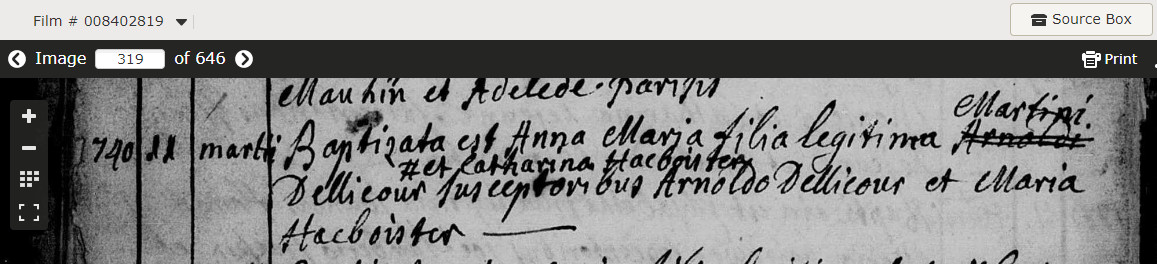 Film # 008402819
Source Box
Image 319 of 646
Print
et Adelede parisis
Martini
1740 11 martii Baptizata est Anna Maria filia legitima Arnoldi
# et Catharina Haeboister
Dellicour susceptoribus Arnoldo Dellicour et Maria
Haeboister